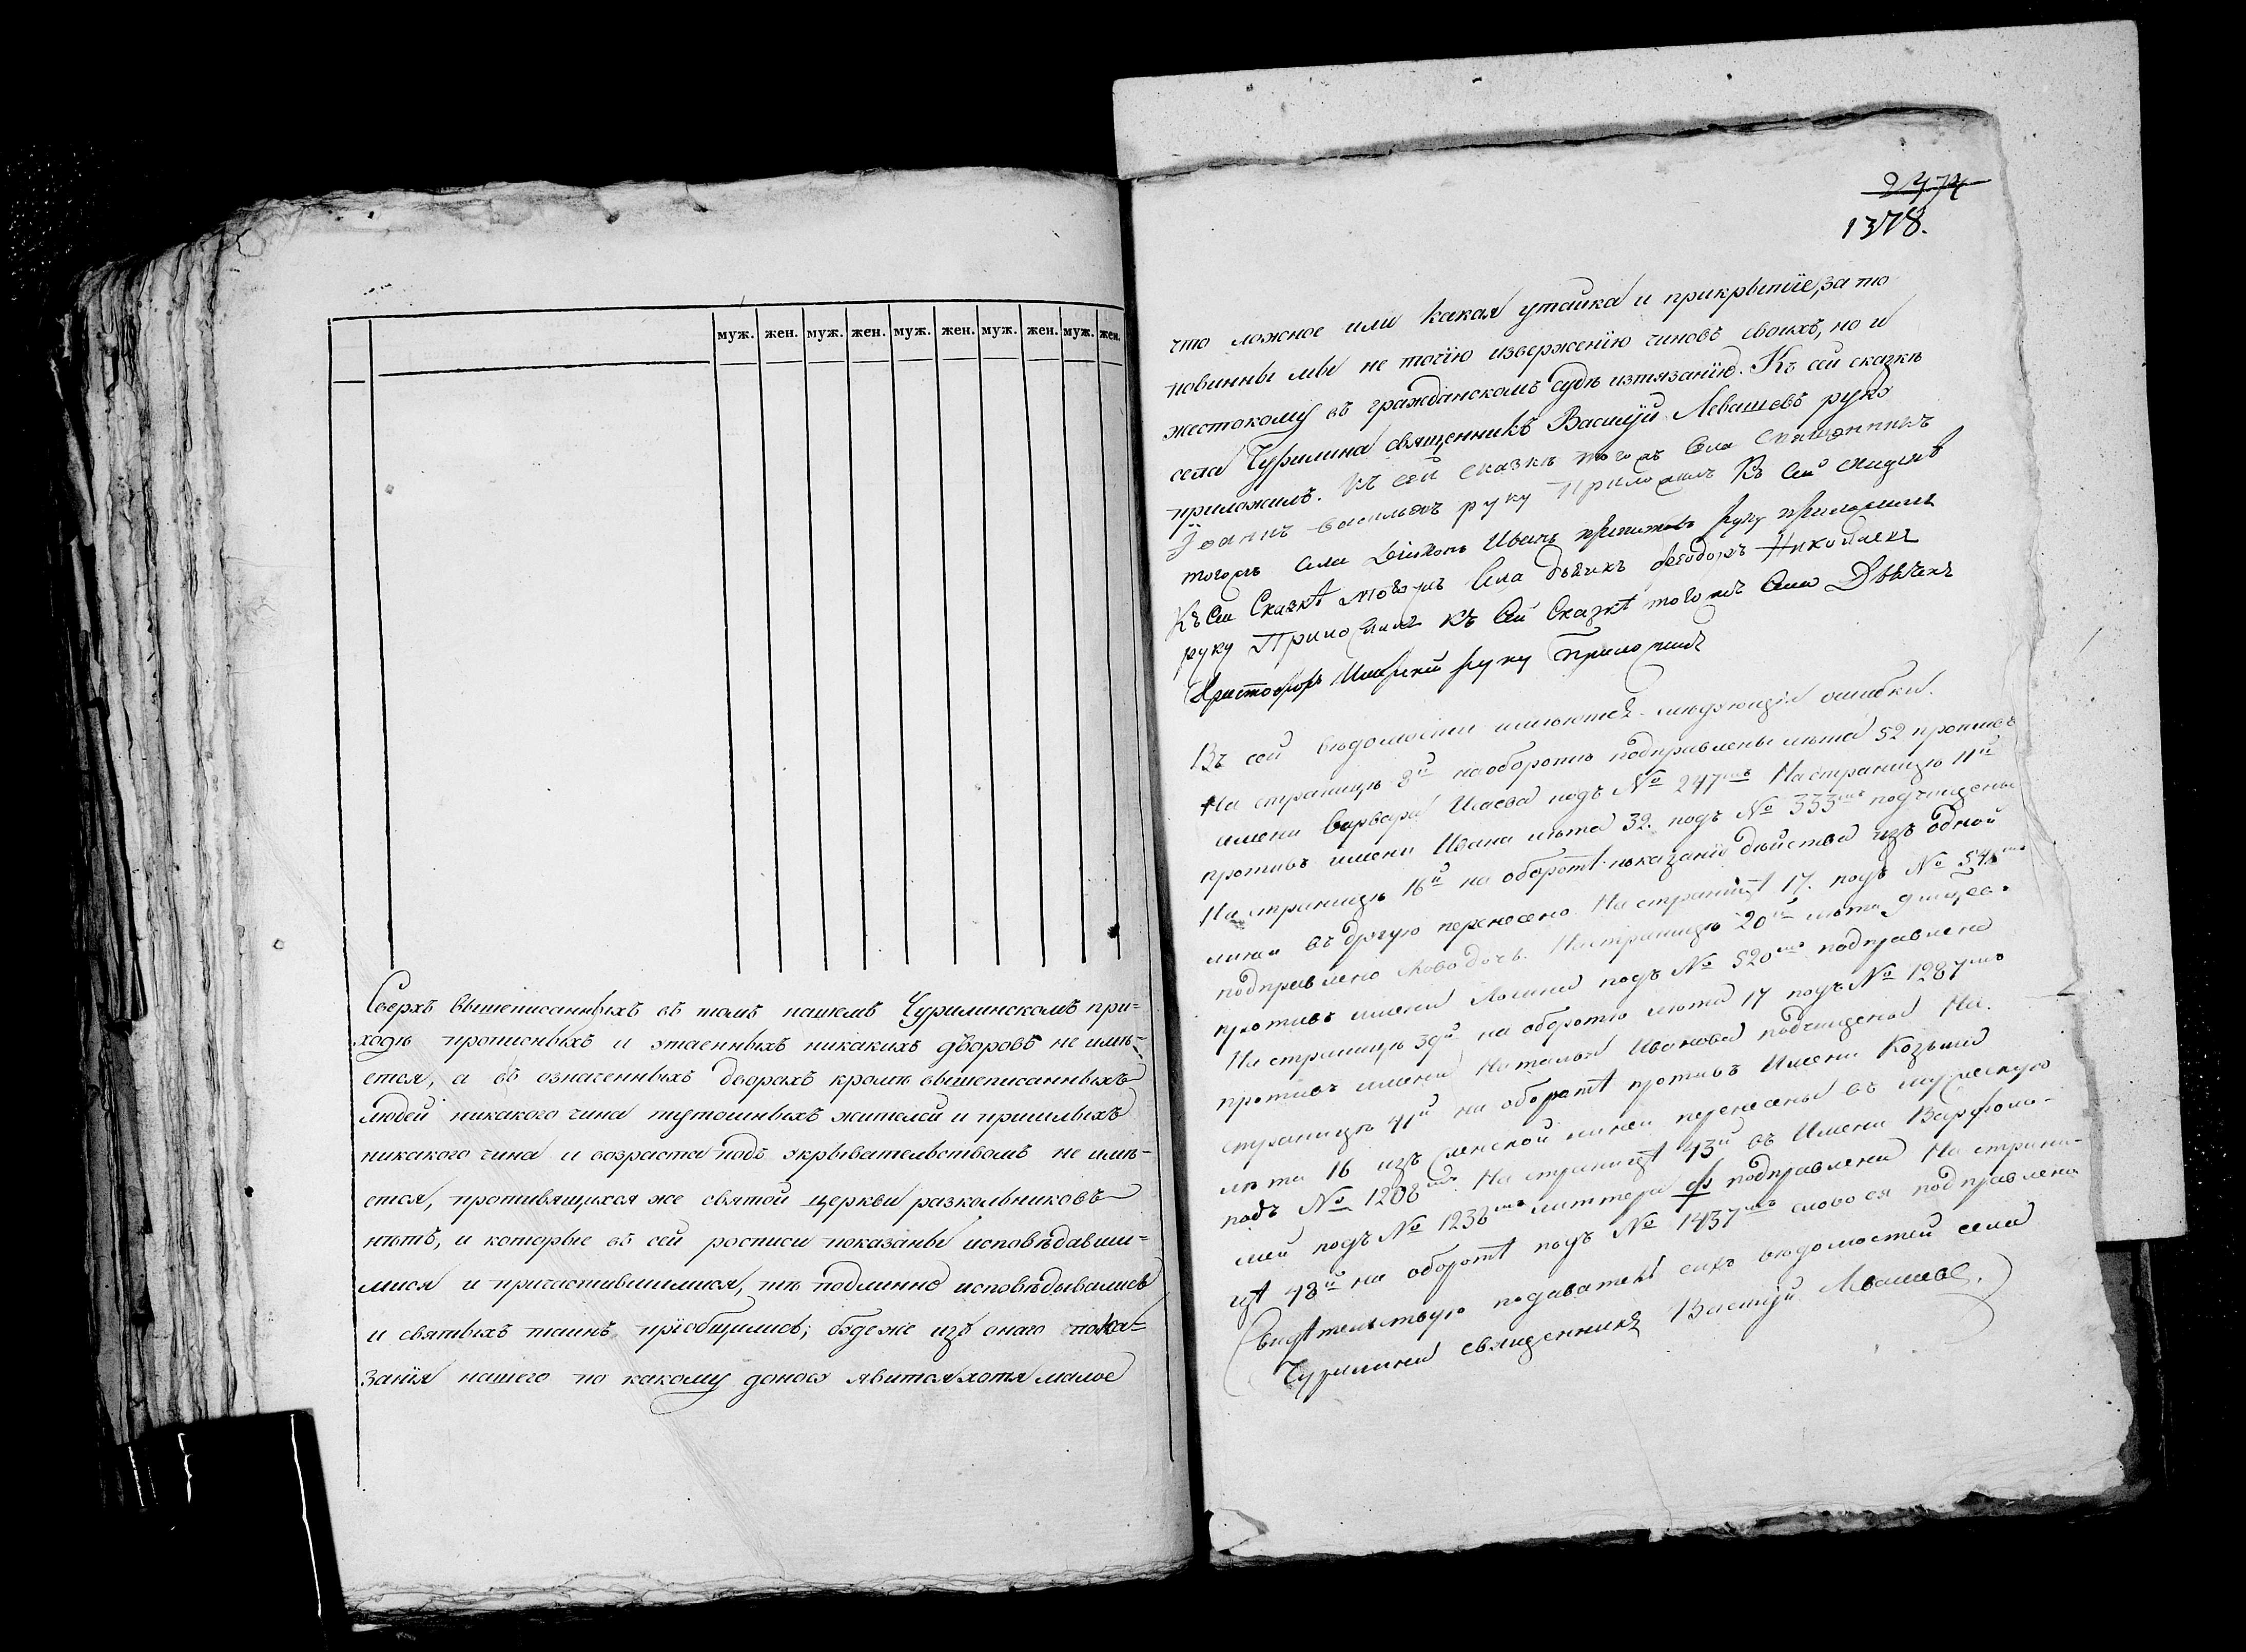 муж. жен. муж. жен. муж. жен. муж. жен. муж. жен.
Сверхъ вышеписанныхъ въ томъ нашемъ Чурилинскомъ при=
ходѣ прописныхъ и утаенныхъ никакихъ дворовъ не имѣ-
ется, а въ означенныхъ дворахъ кромѣ вышеписанныхъ
людей никакого чина тутошныхъ жителей и пришлыхъ
никакого чина и возраста подъ укрывательствомъ не имѣ-
ется, противящихся же святой церкви раскольниковъ
нѣтъ, и которые въ сей росписи показаны исповѣдавши-
мися и причастившимися, тѣ подлинно исповѣдывались
и святыхъ таинъ пріобщились; будеже изъ онаго пока=
занія нашего по какому доносу явится хотя малое
2474
1378.
что ложное или какая утайка и прикрытіе, за то
повинны мы не точію изверженію чиновъ своихъ, но и
жестокому въ гражданскомъ судѣ изтязанію. Къ сей сказкѣ
села Чурилина священникъ Василій Левашевъ руку
приложилъ. Къ сей сказкѣ тогожъ села священникъ
Іоаннъ Васильевъ руку приложилъ Къ сей
тогожъ села Діяконъ Иванъ руку приложилъ
Къ сей Сказкѣ тогожъ Села дьячекъ феодоръ Николаевъ
руку Приложилъ Къ сей Сказкѣ тогожъ села Дьячекъ
Христофоръ руку приложилъ
Въ сей вѣдомости имѣются слѣдующія ошибки.
На страницѣ 8й на оборотѣ подправлены лѣта 52 противъ
имени Варвара Исаева подъ № 247мъ На страницѣ 11й
противъ имени Ивана лѣта 32. подъ № 333мъ подчищены
На страницѣ 16й на оборотѣ показаніе дѣйства изъ одной
линеи въ другую перенесено На страницѣ 17. подъ №
подправлено слово дочь. На страницѣ 20й лѣта
противъ имени подъ № 520мъ подправлена
На страницѣ 39й на оборотѣ лѣта 17 подъ №
противъ имени Наталья Иванова подчищена На
страницѣ 41й на оборотѣ противъ Имени Козьма
лѣта 16 изъ женской линеи перенесены въ мужескую
подъ № 1208мъ На страницѣ 43й въ Имени Варфоло-
мей подъ № 1236мъ литтера ф подправлена На страни-
цѣ 48й на оборотѣ подъ № 1437мъ слово ся подправлено
Свидѣтельствую податель сихъ вѣдомостей села
Чурилина священникъ Василій Левашевъ.